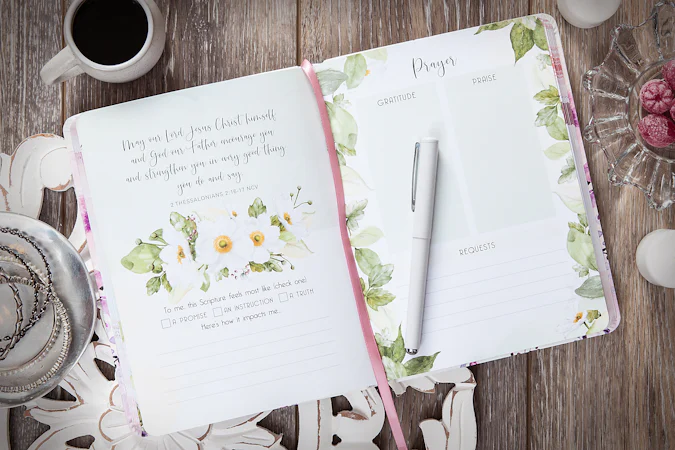 May our Lord Jesus Christ himself
and God our Father encourage you
and strengthen you in every good thing
you do and say.
2 THESSALONIANS 2:16-17 NCV
To me, this Scripture feels most like (check one):
A PROMISE AN INSTRUCTION A TRUTH
Here's how it impacts me...
Prayer
GRATITUDE
PRAISE
REQUESTS